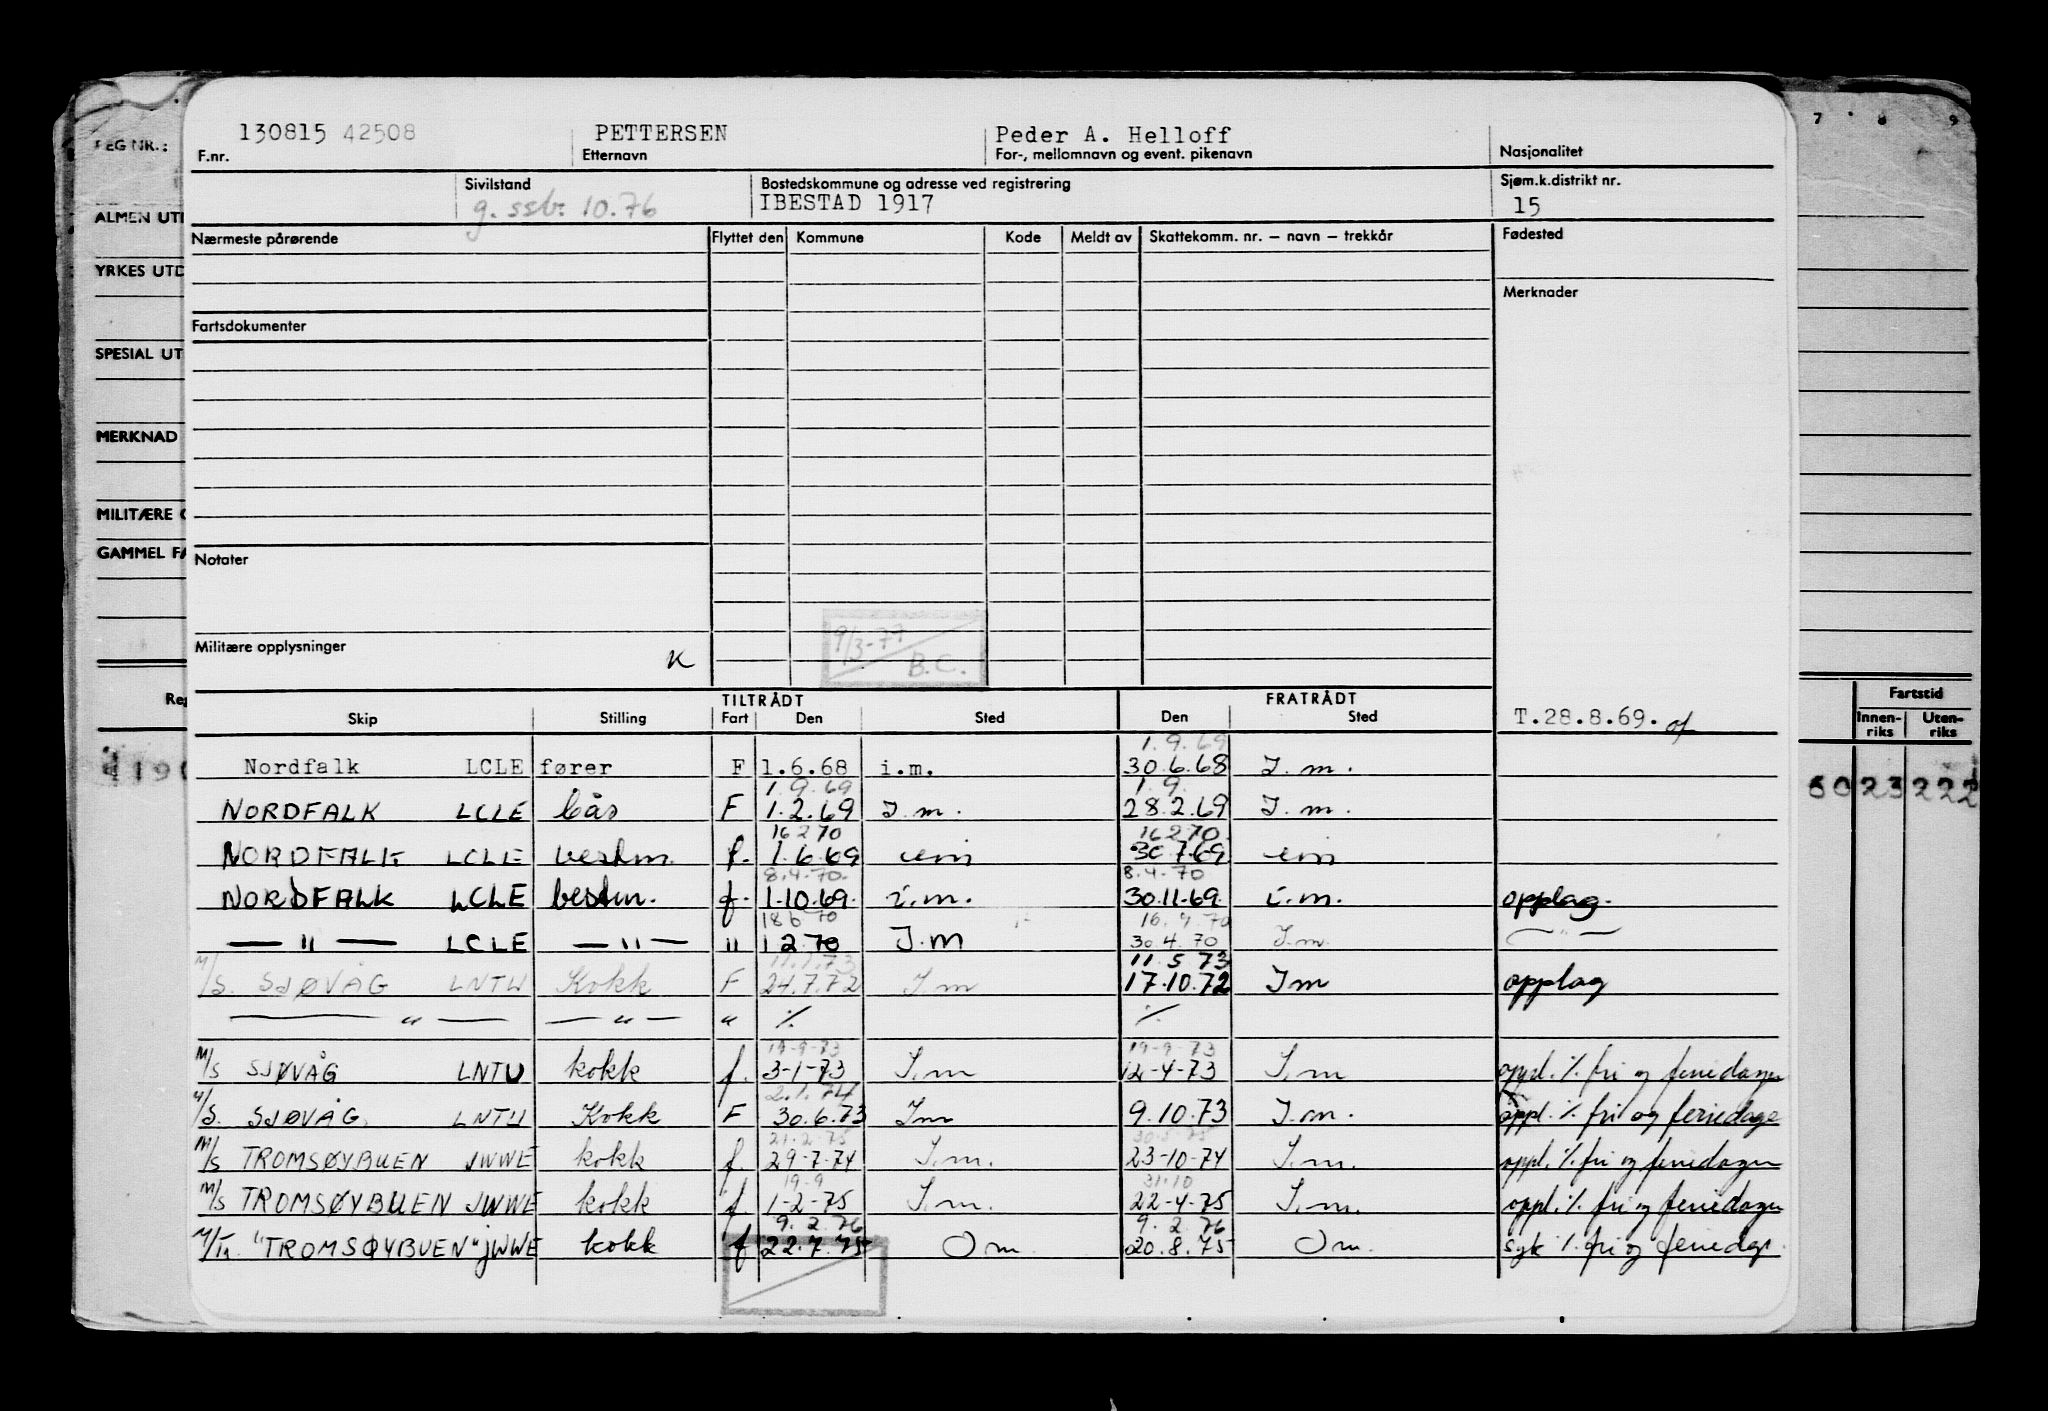 130815 42508 PETTERSEN Peder A. Helloff
F.nr. Etternavn For-, mellomnavn og event. pikenavn Nasjonalitet
REG NR.: 7 8 9
Sivilstand Bostedskommune og adresse ved registrering Sjøm.k.distrikt nr.
g. ssb. 10.76 IBESTAD 1917 15
ALMEN UTD
Nærmeste pårørende Flyttet den Kommune Kode Meldt av Skattekomm. nr. – navn – trekkår Fødested
YRKES UTD
Merknader
Fartsdokumenter
SPESIAL UT
MERKNAD
MILITÆRE O
GAMMEL FA
Notater
9/3-77
B.C.
Militære opplysninger K
TILTRÅDT FRATRÅDT
Reg Fartstid
Skip Stilling Fart Den Sted Den Sted T.28.8.69. of Innenriks Utenriks
1.9.69
Nordfalk LCLE fører F 1.6.68 i.m. 30.6.68 I.m.
60 23 222
1.9.69 1.9.
NORDFALK LCLE bås F 1.2.69 I.m. 28.2.69 I.m.
16 2 70 16 2 70
NORDFALK LCLE bestm. f. 1.6.69 30.7.69
8.4.70. 8.4.70
NORDFALK LCLE bestm. f. 1.10.69. i.m. 30.11.69. i.m. opplag.
18 6 70 16.4.70
— " — LCLE — " — " 1 2 70 I.m 30.4.70 I.m. — " —
11.5.73
M/S. SJØVÅG LNTU Kokk F 24.7.72 I m 17.10.72 I m opplag
— " — — " — " % %
19-9-73 19-9-73
M/S SJØVÅG LNTU kokk f. 3-1-73 I.m 12-4-73 I.m oppl. % fri og feriedager
2.1.74
M/S. SJØVÅG LNTU Kokk F 30.6.73 Im 9.10.73 I.m. oppl. % fri og feriedage
21.2.75 30.5.75
M/S TROMSØYBUEN JWWE kokk f. 29-7-74 I.m. 23-10-74 I.m. oppl. % fri og feriedager
19-9 31.10
M/S TROMSØYBUEN JWWE kokk f. 1-2-75 I.m. 22-4-75 I.m. oppl. % fri og feriedager
9.2.76 9.2.76
"TROMSØYBUEN" JWWE kokk f 22.7.75 O m 20.8.75 O m. syk % fri og feriedgr.